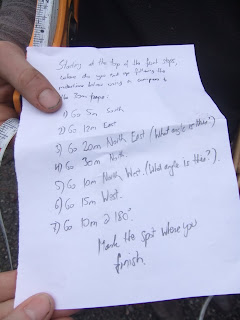 Starting at the top of the front steps,
where do you end up following the
instructions below using a compass &
the 30m tape:
1) Go 5m South
2) Go 12m East
3) Go 20m North East (What angle is this?)
4) Go 30m North.
5) Go 10m North West. (What angle is this?).
6) Go 15m West.
7) Go 10m @ 180°.
Mark the spot where you
finish.